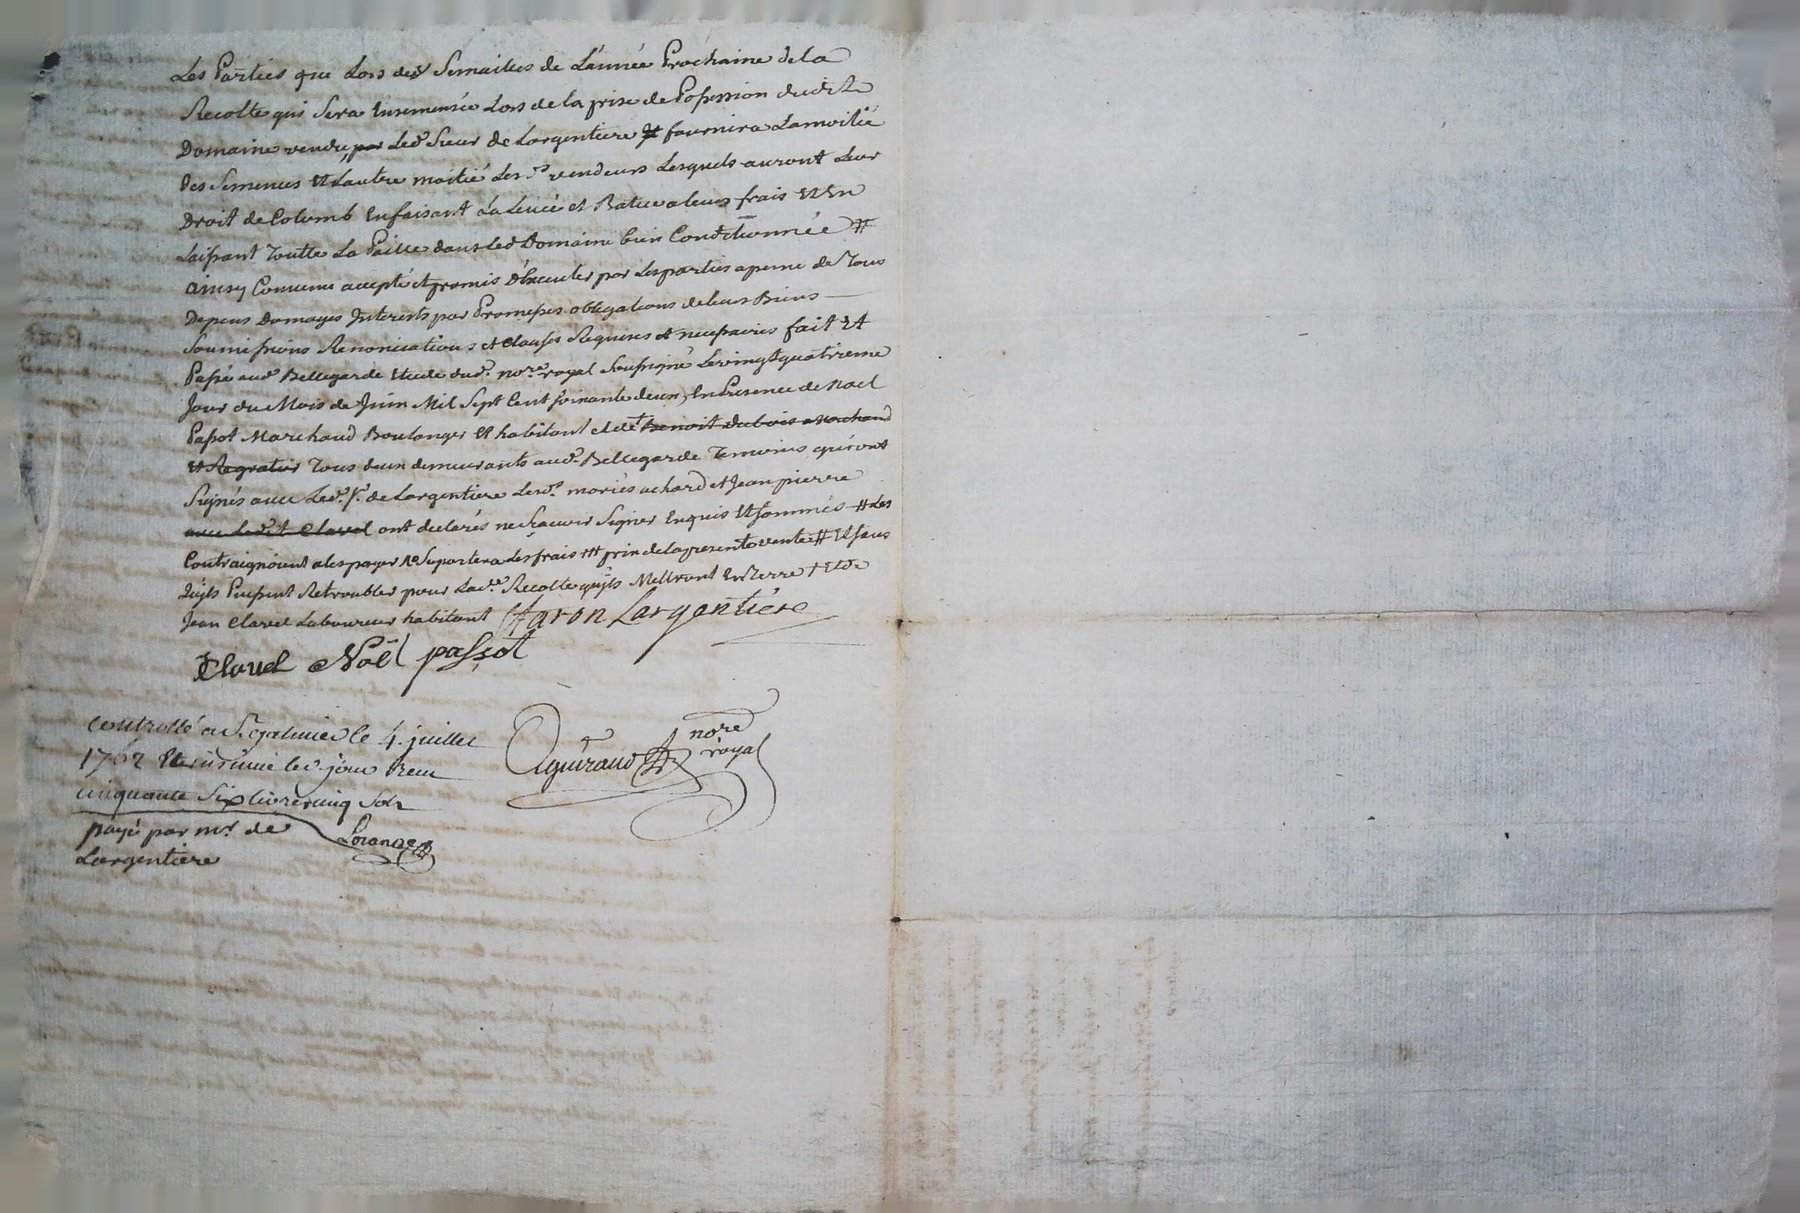 Les Parties que Lors des Semailles de Lannée Prochaine de la
Recolte qui Sera Ensemensée Lors de la prise de Possession dudit
Domaine vendu, par Led. Sieur de Largentiere fournira Lamoitié
des Semences Et Lautre moitié Les Srs vendeurs Lesquels auront Leur
Droit de Colomb En faisant La Levée et Batue a leurs frais Et En
Laissant Toutte La Paille dans Led Domaine bien Conditionnée #
ainsy Convenu accepté et promis dExecuter par Les parties a peine de Tous
Depens Domages Interests par Promesses obligations de leurs Biens
Soumissions Renonciations et Clauses Requises et necessaires fait Et
Passé aud. Bellegarde Etude dud. nore royal Soussigné Le vingt quatrieme
Jour du Mois de Juin Mil Sept Cent soixante deux, En Presence de Noel
Passot Marchand Boulanger Et habitant et de Benoit Dubois Marchand
Et Tous deux demeurants aud. Bellegarde Temoins qui ront
Signés avec Led. Sr. de Largentiere Lesd. mariés achard et Jean pierre
avec Ledit Clavel ont declarés ne Scavoir Signer Enquis Et Sommés # Les
Contraignoient a les payer Suportera Les frais Et prix de la presente vente # Et Sans
quils Puissent Retroubler pour Lad.e Recolte quils Mettront En Terre † Et de
Jean Clavel Laboureur habitant Charon Largentiere
Clavel Noël passot
controllé a St galmier le 4 juillet
1762 Et insinué led. jour Reçu
cinquante Six livres cinq Sols
payé par mr. de
Largentiere
Aguiraud nore
royal